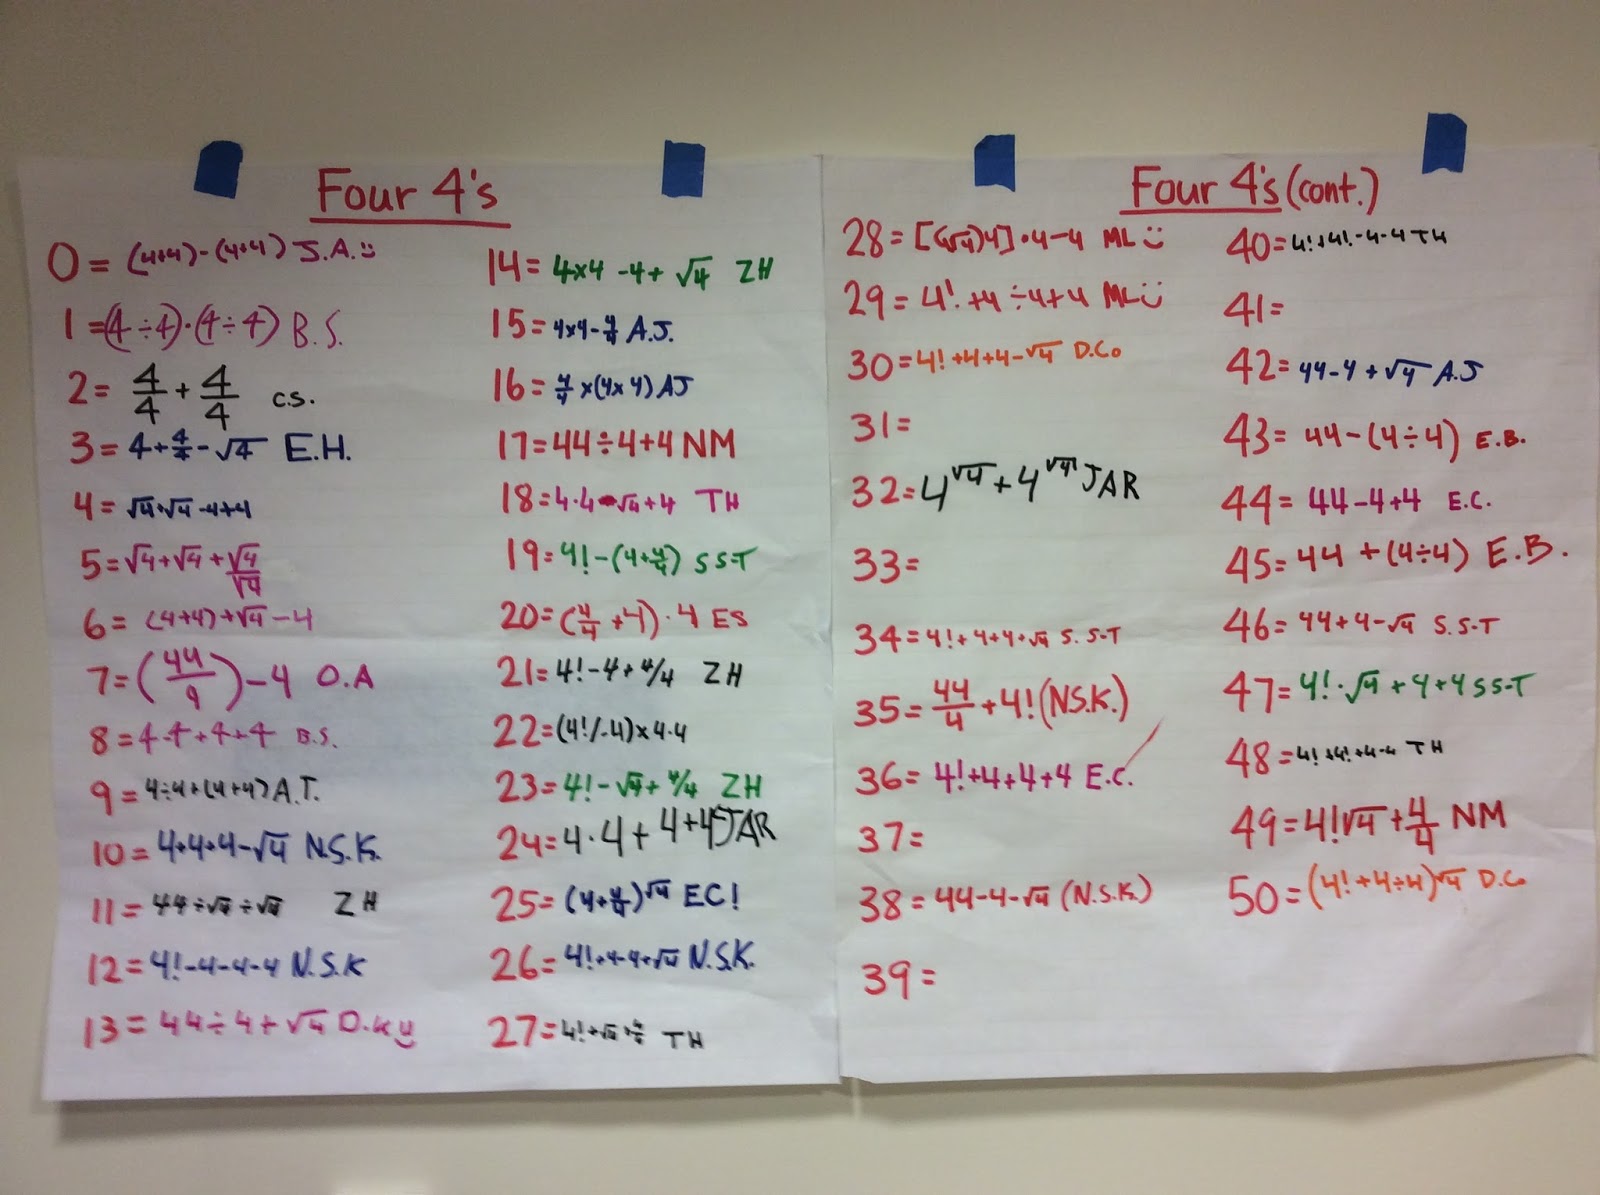 Four 4's
0 = (4+4)-(4+4) J.A.
1 = (4÷4)·(4÷4) B.S.
2 = 4/4 + 4/4 C.S.
3 = 4+4/4-√4 E.H.
4 = √4·√4-4+4
5 = √4+√4+√4/√4
6 = (4+4)+√4-4
7 = (44/4)-4 O.A
8 = 4-4+4+4 B.S.
9 = 4÷4+(4+4) A.T.
10 = 4+4+4-√4 N.S.K.
11 = 44÷√4÷√4 ZH
12 = 4!-4-4-4 N.S.K
13 = 44÷4+√4 D.K
14 = 4x4-4+√4 ZH
15 = 4x4-4/4 A.J.
16 = 4/4x(4x4) AJ
17 = 44÷4+4 NM
18 = 4·4-√4+4 TH
19 = 4!-(4+4/4) S S-T
20 = (4/4+4)·4 ES
21 = 4!-4+4/4 ZH
22 =
23 = 4!-√4+4/4 ZH
24 = 4·4+4+4 JAR
25 = (4+4/4)^√4 EC!
26 = 4!+4-4+√4 N.S.K.
27 = 4!+√4+4/4 TH
Four 4's (cont.)
28 = [(√4)4]·4-4 ML
29 = 4!+4÷4+4 ML
30 = 4!+4+4-√4 D.Co
31 =
32 = 4^√4+4^√4 JAR
33 =
34 = 4!+4+4+√4 S.S-T
35 = 44/4+4! (N.S.K.)
36 = 4!+4+4+4 E.C.
37 =
38 = 44-4-√4 (N.S.K.)
39 =
40 = 4!+4!-4-4 TH
41 =
42 = 44-4+√4 A.J
43 = 44-(4÷4) E.B.
44 = 44-4+4 E.C.
45 = 44+(4÷4) E.B.
46 = 44+4-√4 S.S-T
47 = 4!·√4+4+4 SS-T
48 = 4!+4!+4-4 TH
49 = 4!√4+4/4 NM
50 = (4!+4÷4)^√4 D.Co